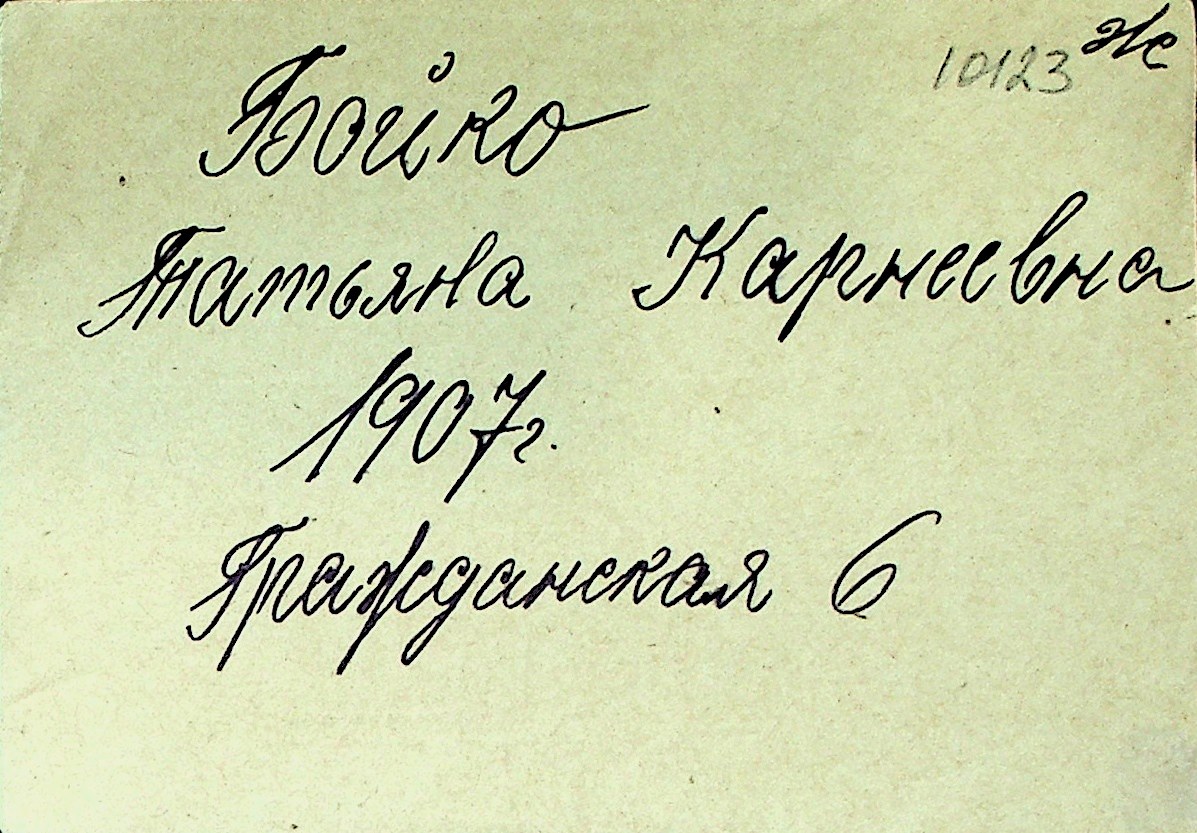 10123 же
Бойко
Татьяна Карнеевна
1907г.
Гражданская 6